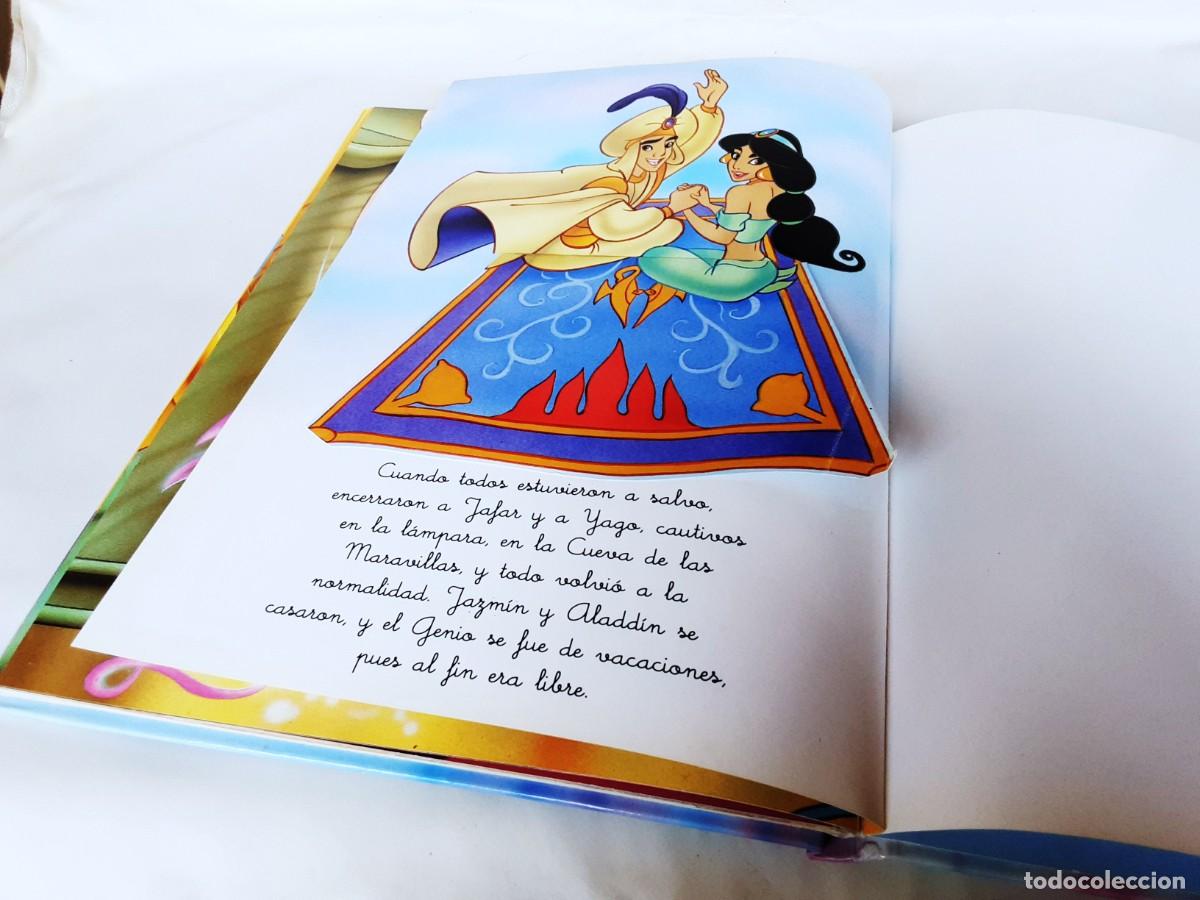 Cuando todos estuvieron a salvo,
encerraron a Jafar y a Yago, cautivos
en la lámpara, en la Cueva de las
Maravillas, y todo volvió a la
normalidad. Jazmín y Aladdín se
casaron, y el Genio se fue de vacaciones,
pues al fin era libre.
todocoleccion